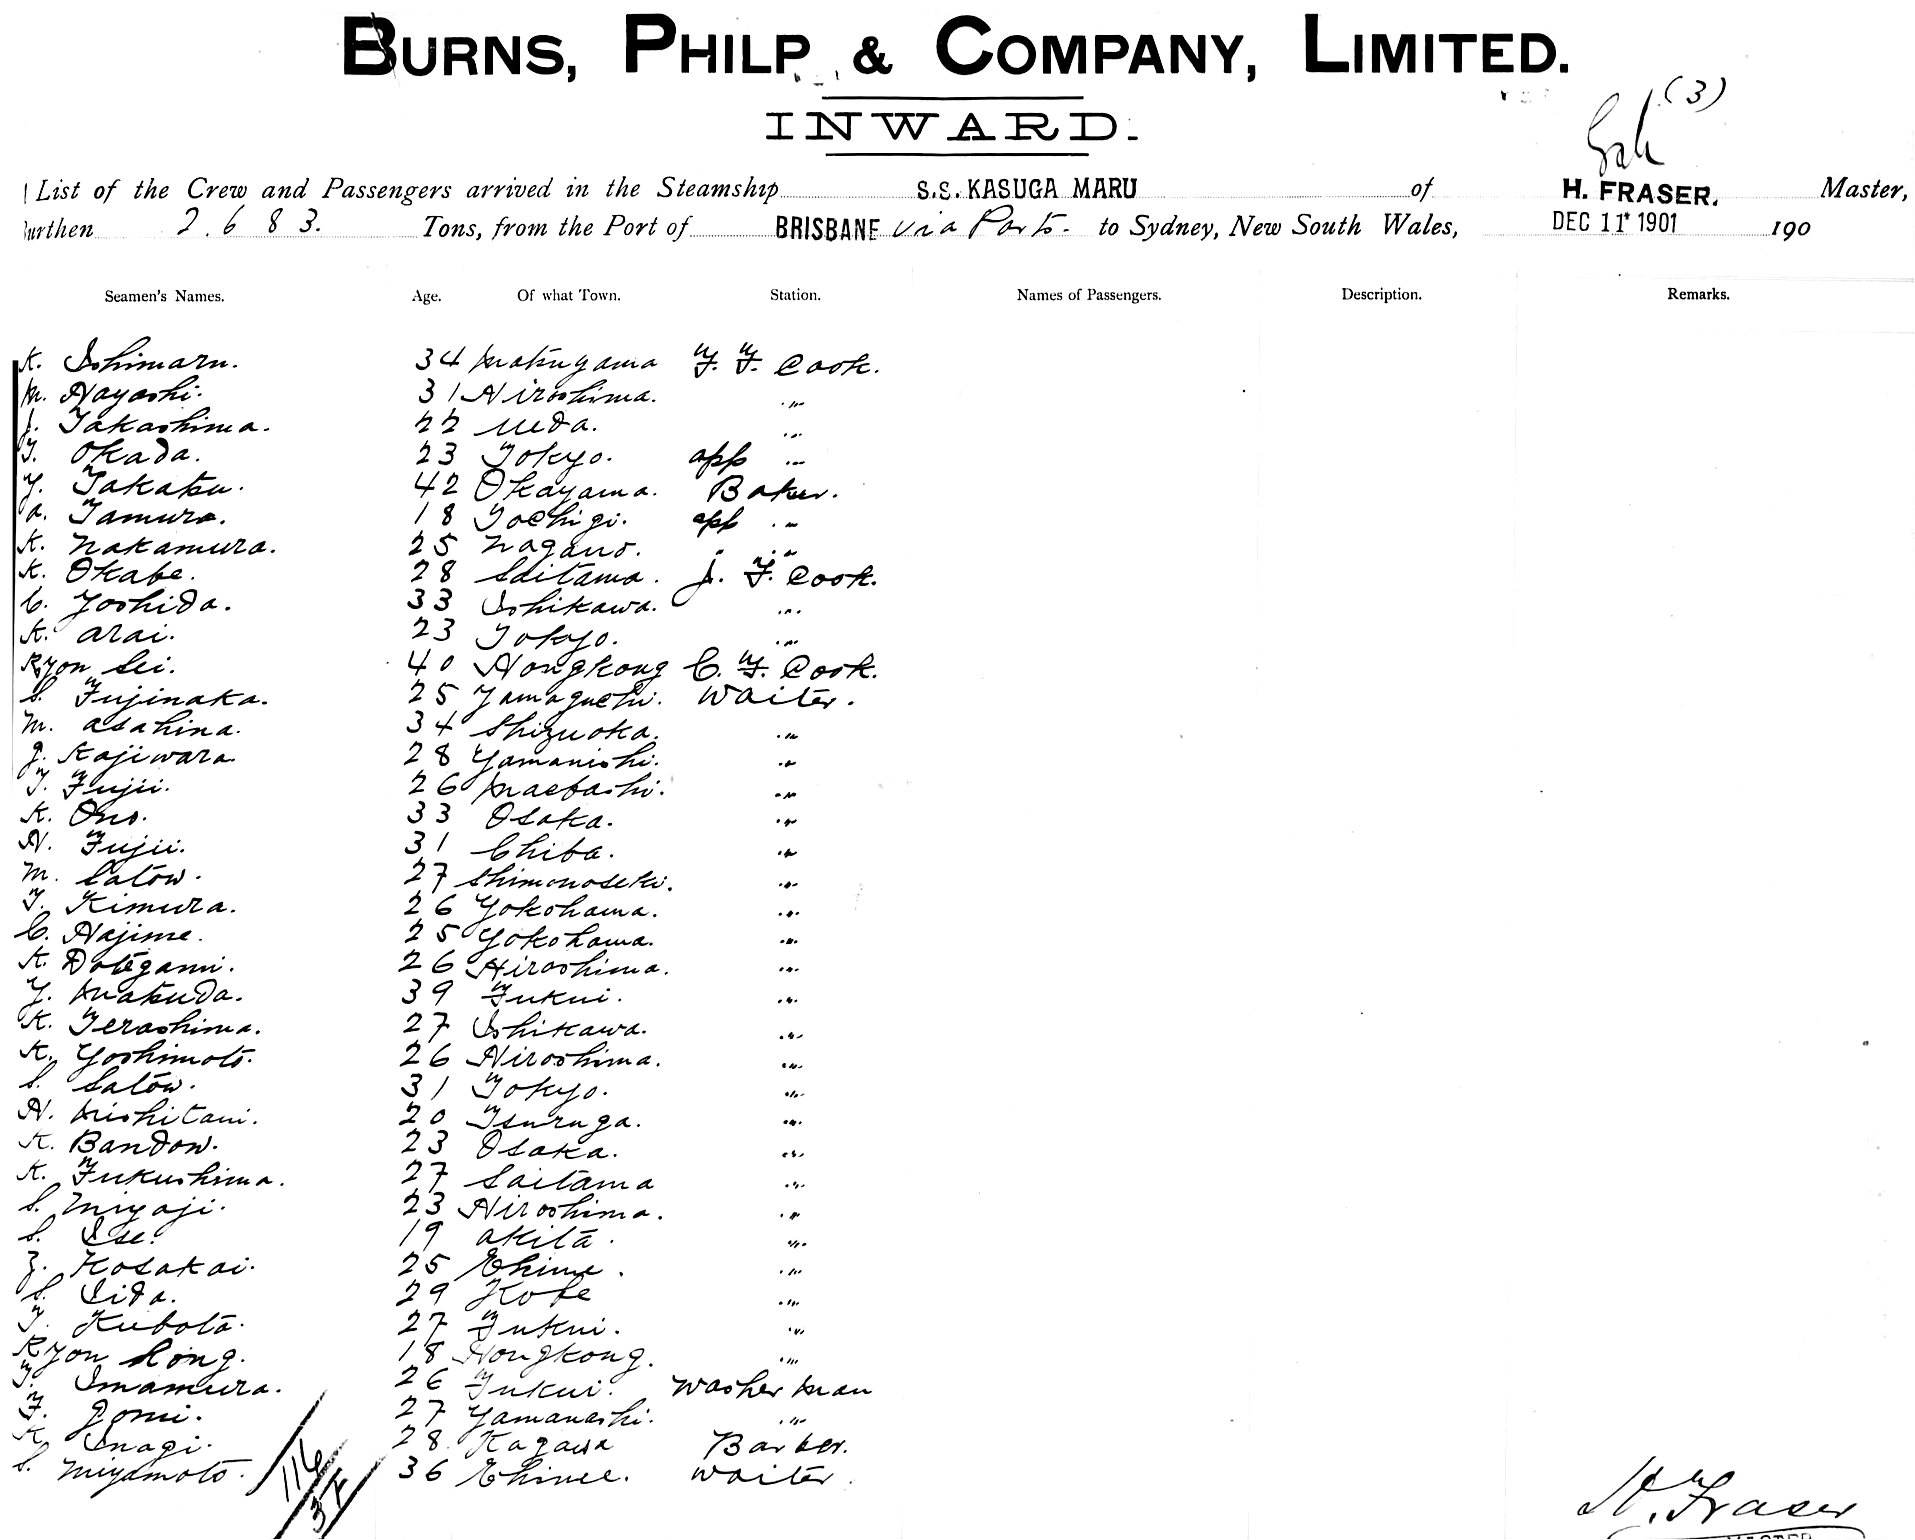 BURNS, PHILP & COMPANY, LIMITED.
INWARD.
(3)
List of the Crew and Passengers arrived in the Steamship S.S. KASUGA MARU of H. FRASER. Master,
urthen 2.683. Tons, from the Port of BRISBANE via Ports. to Sydney, New South Wales, DEC 11 1901 190
Seamen's Names. Age. Of what Town. Station. Names of Passengers. Description. Remarks.
K. Ishimaru. 34 Matsuyama F. F. Cook.
M. Hayashi. 31 Hiroshima. "
J. Takashima. 22 Ueda. "
T. Okada. 23 Tokyo. app "
Y. Takatsu. 42 Okayama. Baker.
A. Tamura. 18 Tochigi. app "
K. Nakamura. 25 Nagano. " "
K. Okabe. 28 Saitama. J. F. Cook.
C. Yoshida. 33 Ishikawa. "
K. Arai. 23 Tokyo. "
Ryon Sei. 40 Hongkong C. F. Cook.
S. Fujinaka. 25 Yamaguchi. Waiter.
M. Asahina. 34 Shizuoka. "
G. Kajiwara 28 Yamanishi. "
T. Fujii. 26 Maebashi. "
K. Ono. 33 Osaka. "
H. Fujii. 31 Chiba. "
M. Satow. 27 Shimonoseki. "
T. Kimura. 26 Yokohama. "
C. Hajime. 25 Yokohama. "
K. Dotegami. 26 Hiroshima. "
Y. Matsuda. 39 Fukui. "
K. Terashima. 27 Ishikawa. "
K. Yoshimoto. 26 Hiroshima. "
S. Satow. 31 Tokyo. "
H. Nishitani. 20 Tsuruga. "
K. Bandow. 23 Osaka. "
K. Fukushima. 27 Saitama "
S. Miyaji. 23 Hiroshima. "
S. Ise. 19 Akita. "
Z. Kosakai. 25 Ehime. "
S. Iida. 29 Kobe "
T. Kubota. 27 Fukui. "
Ryon Hong. 18 Hongkong. "
T. Imamura. 26 Fukui. Washer man
F. Gomi. 27 Yamanashi. "
K. Inagi. 28 Kagawa Barber.
S. Miyamoto. 36 Ehime. Waiter.
116
H. Fraser
MASTER